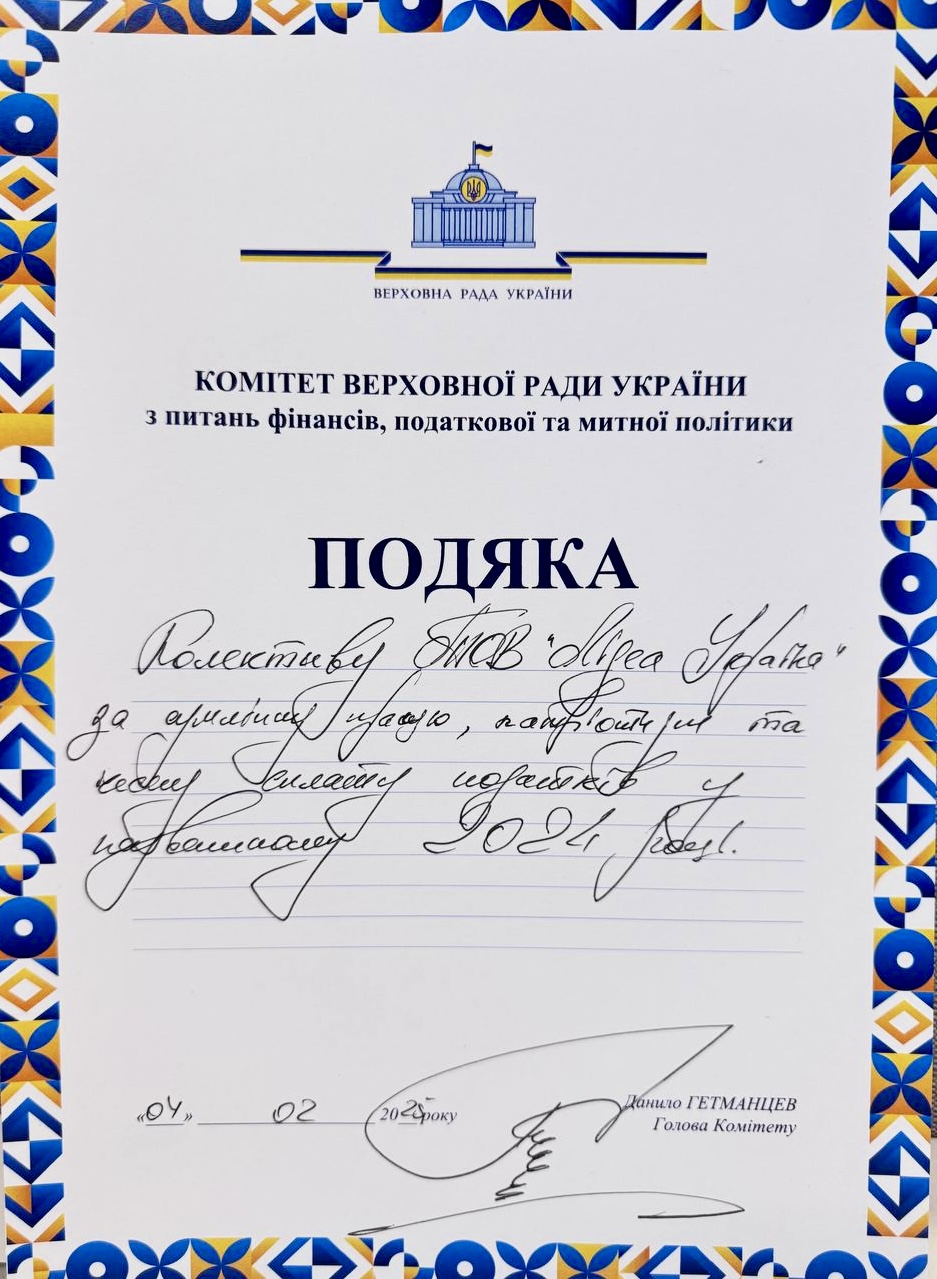 ВЕРХОВНА РАДА УКРАЇНИ
КОМІТЕТ ВЕРХОВНОЇ РАДИ УКРАЇНИ
з питань фінансів, податкової та митної політики
ПОДЯКА
Колективу ТОВ "Мідеа Україна"
за сумлінну працю, патріотизм та
чесну сплату податків у
надважкому 2024 році.
«04» 02 2025 року
Данило ГЕТМАНЦЕВ
Голова Комітету